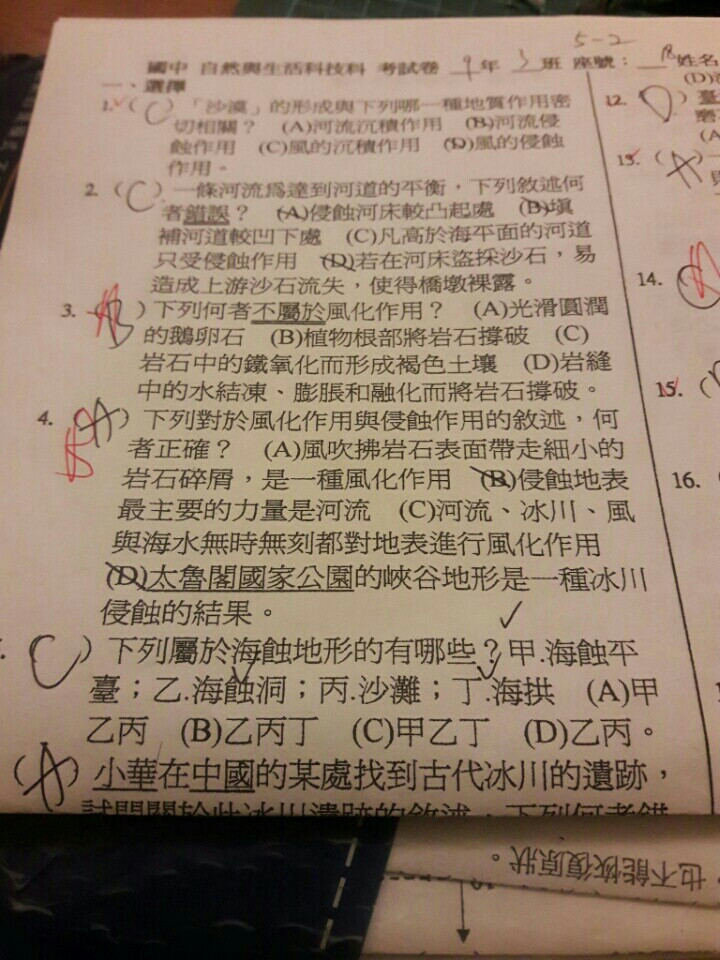 5-2
國中 自然與生活科技科 考試卷 9年 3班 座號： 姓名
一、選擇
1. (C)「沙漠」的形成與下列哪一種地質作用密
切相關？ (A)河流沉積作用 (B)河流侵
蝕作用 (C)風的沉積作用 (D)風的侵蝕
作用。
2. (C)一條河流為達到河道的平衡，下列敘述何
者錯誤？ (A)侵蝕河床較凸起處 (B)填
補河道較凹下處 (C)凡高於海平面的河道
只受侵蝕作用 (D)若在河床盜採沙石，易
造成上游沙石流失，使得橋墩裸露。
3. )下列何者不屬於風化作用？ (A)光滑圓潤
的鵝卵石 (B)植物根部將岩石撐破 (C)
岩石中的鐵氧化而形成褐色土壤 (D)岩縫
中的水結凍、膨脹和融化而將岩石撐破。
4. (A)下列對於風化作用與侵蝕作用的敘述，何
者正確？ (A)風吹拂岩石表面帶走細小的
岩石碎屑，是一種風化作用 (B)侵蝕地表
最主要的力量是河流 (C)河流、冰川、風
與海水無時無刻都對地表進行風化作用
(D)太魯閣國家公園的峽谷地形是一種冰川
侵蝕的結果。
C)下列屬於海蝕地形的有哪些？甲.海蝕平
臺；乙.海蝕洞；丙.沙灘；丁.海拱 (A)甲
乙丙 (B)乙丙丁 (C)甲乙丁 (D)乙丙。
(A)小華在中國的某處找到古代冰川的遺跡，
試問關於此冰川遺跡的敘述，下列何者錯
(D)
12. )臺
磨
(A
13. (A)一
14.
15. (
16.
也不能恢復原狀。